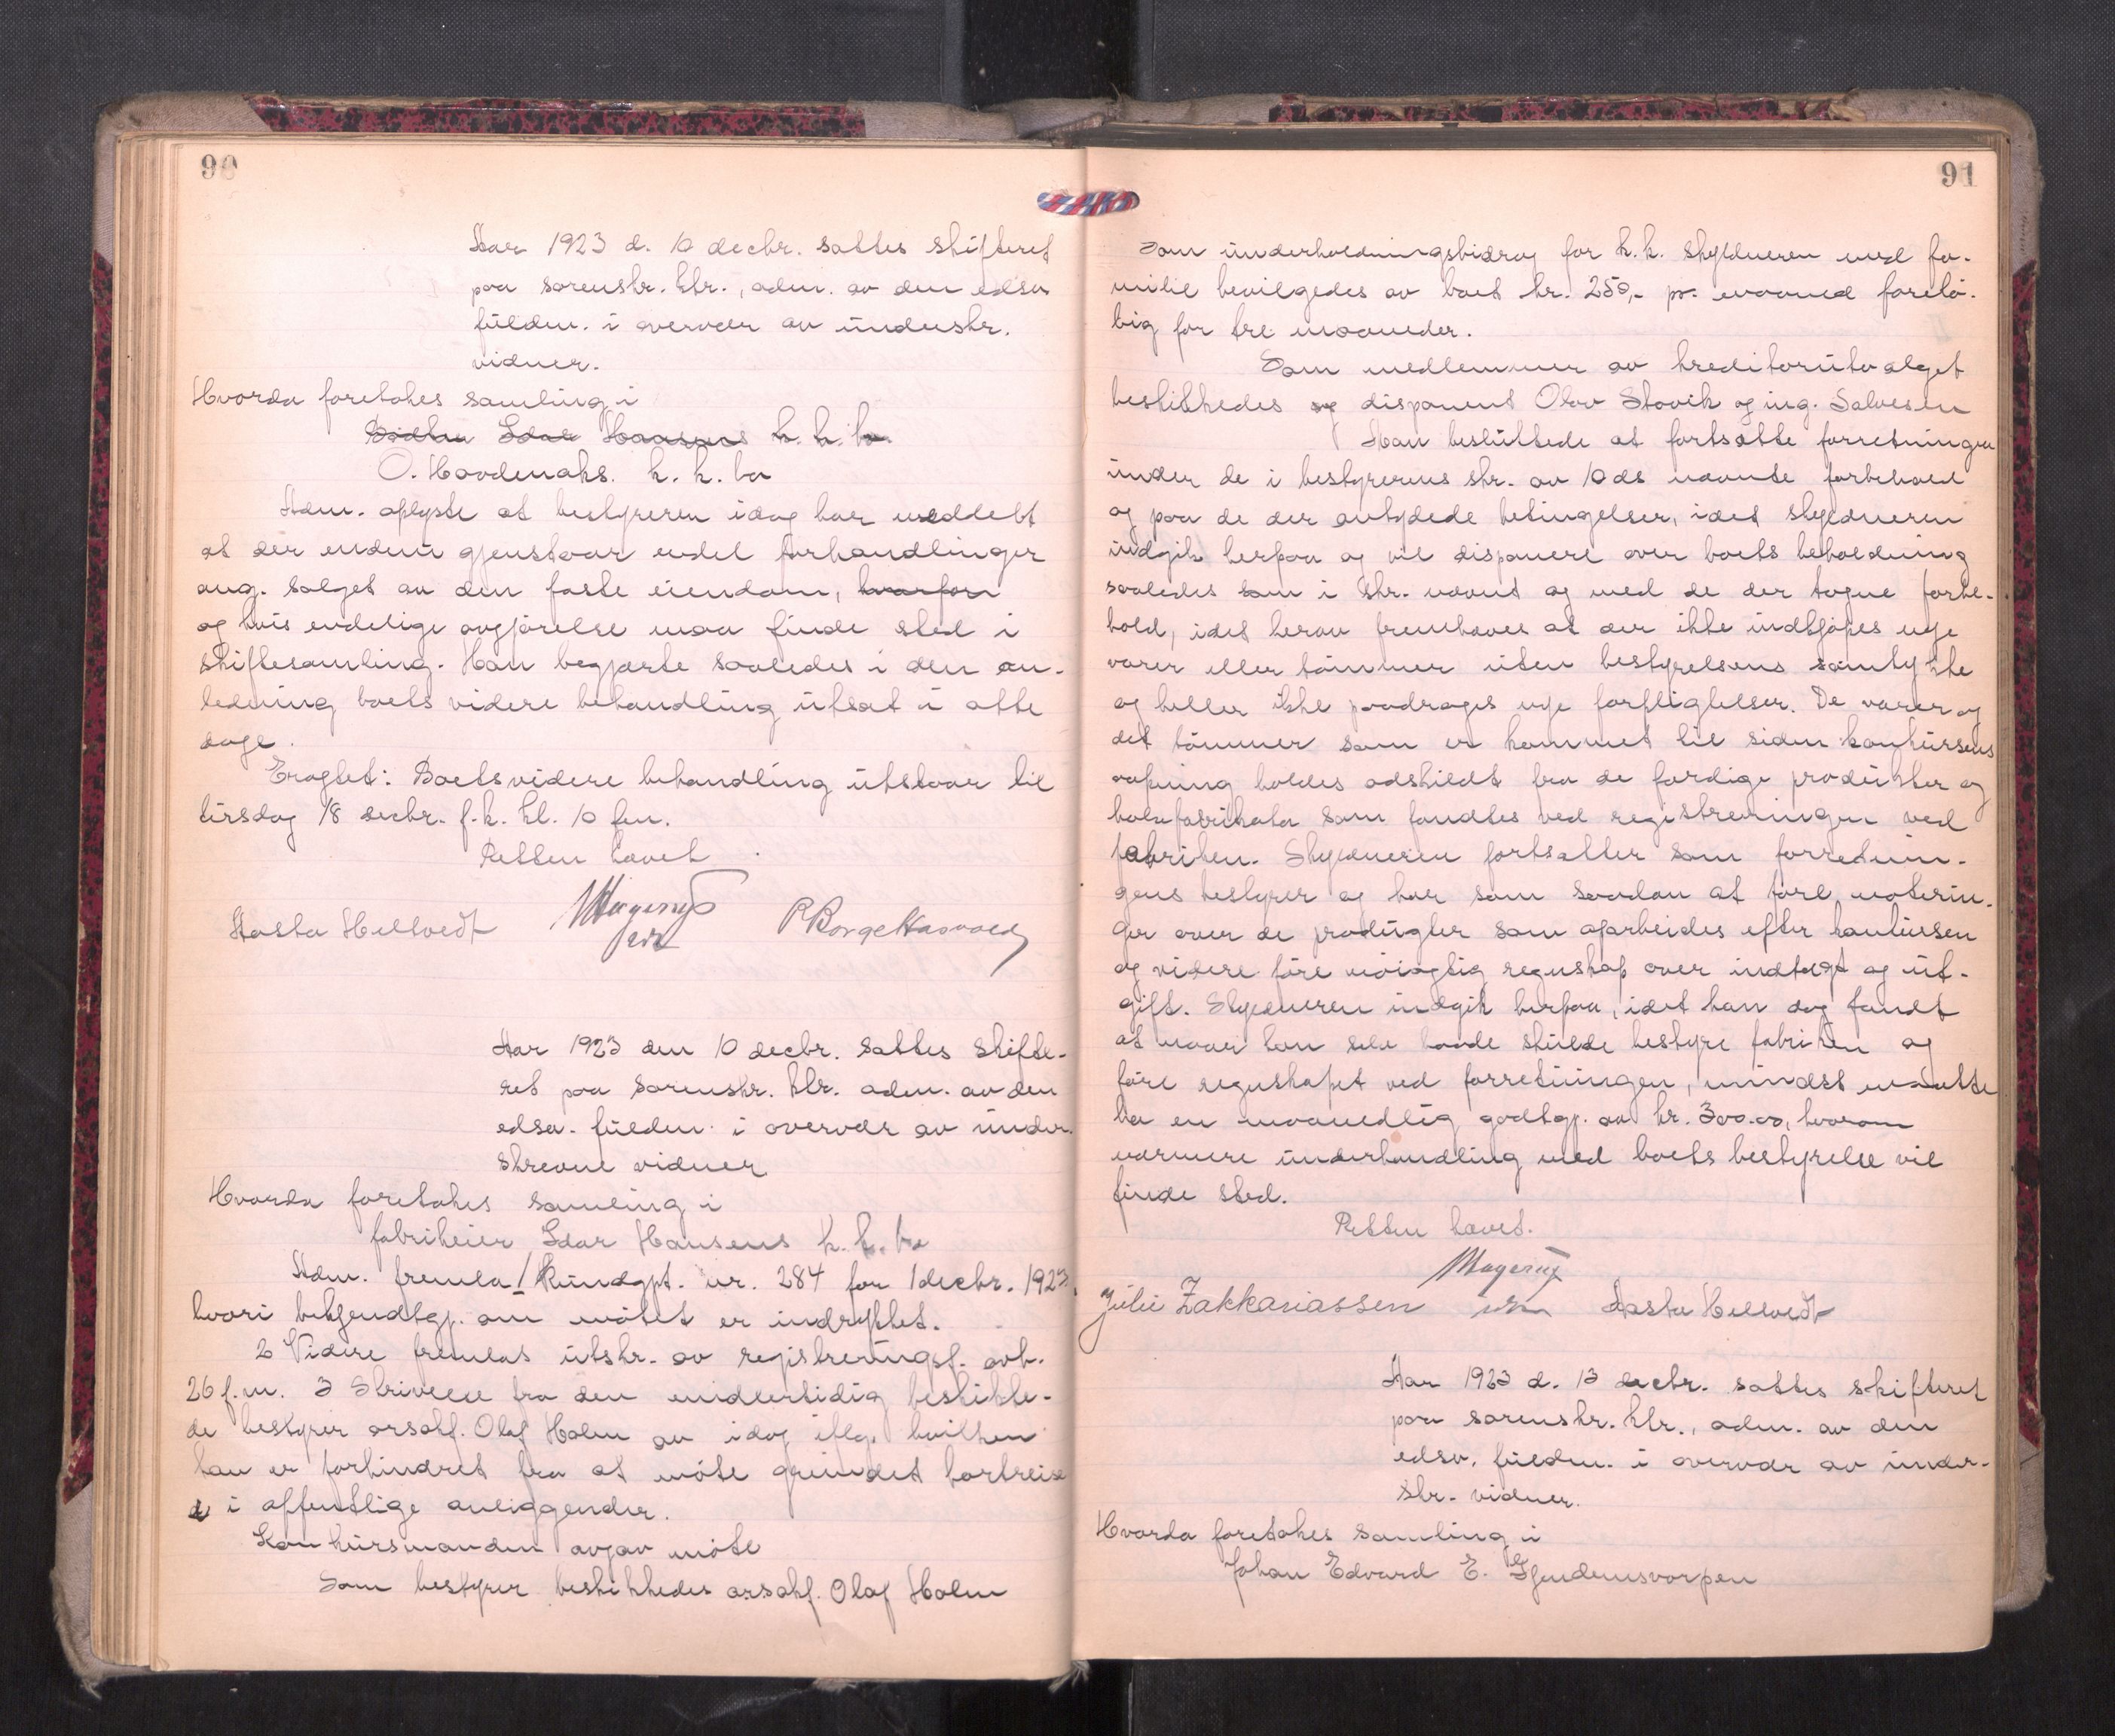 90
Aar 1923 d. 10 decbr. sattes skifteret
paa sorenskr. ktr., adm. av den edsv
fuldm. i overvær av underskr.
vidner.
Hvorda foretokes samling i
Idar Hansens k. k. bo.
O. Hovdenaks. k. k. bo
Adm. oplyste at bestyreren idag har meddelt
at der endnu gjenstaar endel forhandlinger
ang. salget av den faste eiendom, hvorfor
og hvis endelige avgjörelse maa finde sted i
skiftesamling. Han begjærte saaledes i den an-
ledning boets videre behandling utsat i otte
dage.
Eragtet: Boets videre behandling utstaar til
tirsdag 18 decbr. f.k. kl. 10 fm.
Retten hævet
Aasta Hellvedt
Aar 1923 den 10 decbr. sattes skifte-
ret paa sorenskr. ktr. adm. av den
edsv. fuldm. i overvær av under-
skrevne vidner
Hvorda foretokes samling i
fabrikeier Idar Hansens k. k. bo
Adm. fremla 1 Kundgpt. nr. 284 for 1 decbr. 1923.
hvori bekjendtgj. om mötet er indrykket.
2 Videre fremlas utskr. av registreringsf. avh.
26 f.m. 3 Skrivelse fra den midlertidig beskikke-
de bestyrer o.r.sakf. Olaf Holm av idag iflg. hvilken
han er forhindret fra at möte grundet bortreise
i offentlige anliggender.
Konkursmanden avgav möte
Som bestyrer beskikkedes o.r.sakf. Olaf Holm
91
Som underholdningsbidrag for k.k. skyldneren med fa-
milie bevilgedes av boet kr. 250,- pr. maaned forelö-
big for tre maaneder.
Som medlemmer av kreditorutvalget
beskikkedes disponent Olav Stavik og ing. Salvesen
Man besluttede at fortsætte forretningen
under de i bestyrerens skr. av 10 ds nævnte forbehold
og paa de der antydede betingelser, idet skyldneren
indgik herpaa og vil disponere over boets beholdning
saaledes som i skr. nævnt og med de der tagne forbe-
hold, idet herav fremhæves at der ikke indkjöpes nye
varer eller tömmer uten bestyrelsens samtykke
og heller ikke paadrages nye forpligtelser. De varer og
det tömmer som er kommet til siden konkursens
aapning holdes adskildt fra de færdige produkter og
halvfabrikata som fandtes ved registreringen ved
fabriken. Skyldneren fortsætter som forretnin-
gens bestyrer og har som saadan at före noterin-
ger over de produgter som oparbeides efter konkursen
og videre före nöiagtig regnskap over indtægt og ut-
gift. Skyldneren indgik herpaa, idet han dog fandt
at naar han selv baade skulde bestyre fabriken og
före regnskapet ved forretningen, mindst maatte
ha en maanedlig godtgj. av kr. 300.00, hvorom
nærmere underhandling med boets bestyrelse vil
finde sted.
Retten hævet.
Julie Zakkariassen Aasta Hellvedt
Aar 1923 d. 13 decbr. sattes skifteret
paa sorenskr. ktr., adm. av den
edsv. fuldm. i overvær av under-
skr. vidner.
Hvorda foretokes samling i
Johan Edvard E. Gjendemsvarpen